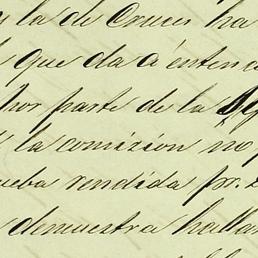 la de Cruces ha
que da á entend
por parte de la
la comizion no p
ueba rendida pr.
demuestra halla